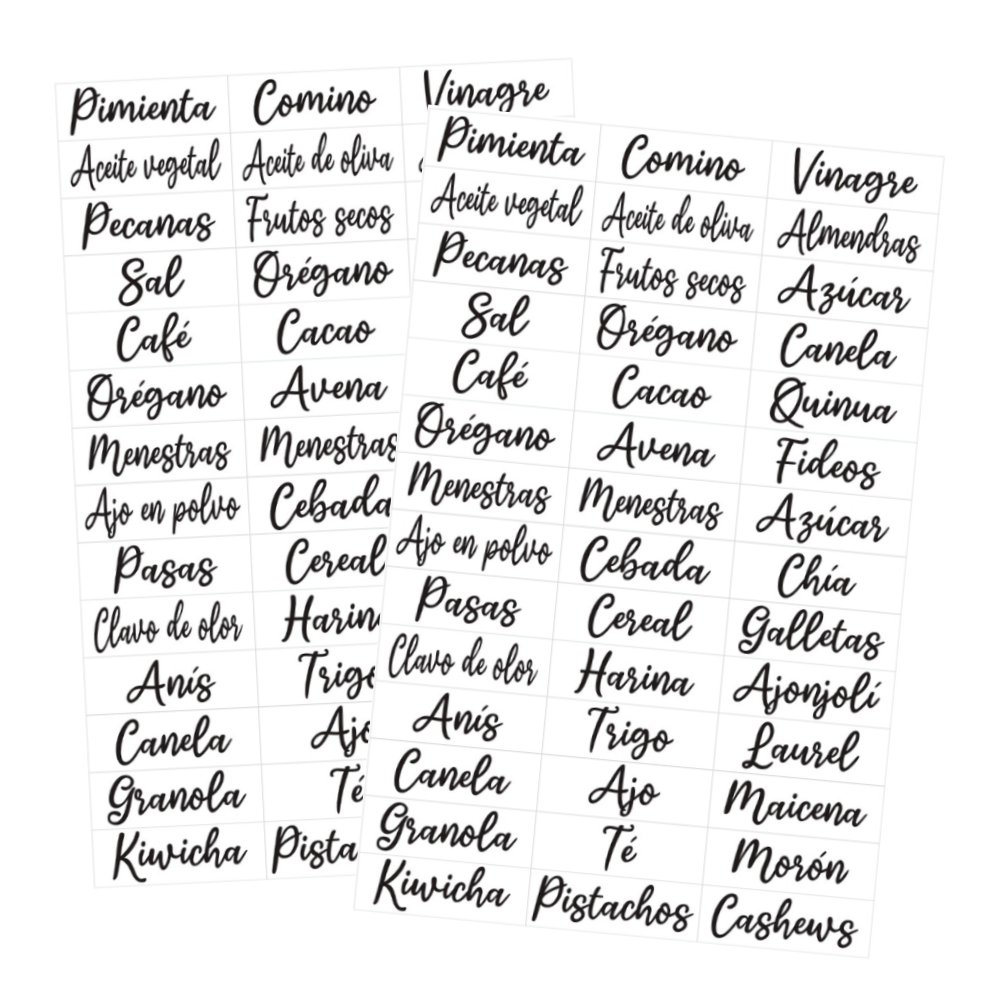 Pimienta Comino Vinagre
Aceite vegetal Aceite de oliva
Pecanas Frutos secos
Sal Orégano
Café Cacao
Orégano Avena
Menestras Menestras
Ajo en polvo Cebada
Pasas Cereal
Clavo de olor Harin
Anís Trigo
Canela Ajo
Granola Té
Kiwicha Pista
Pimienta Comino Vinagre
Aceite vegetal Aceite de oliva Almendras
Pecanas Frutos secos Azúcar
Sal Orégano Canela
Café Cacao Quinua
Orégano Avena Fideos
Menestras Menestras Azúcar
Ajo en polvo Cebada Chía
Pasas Cereal Galletas
Clavo de olor Harina Ajonjolí
Anís Trigo Laurel
Canela Ajo Maicena
Granola Té Morón
Kiwicha Pistachos Cashews